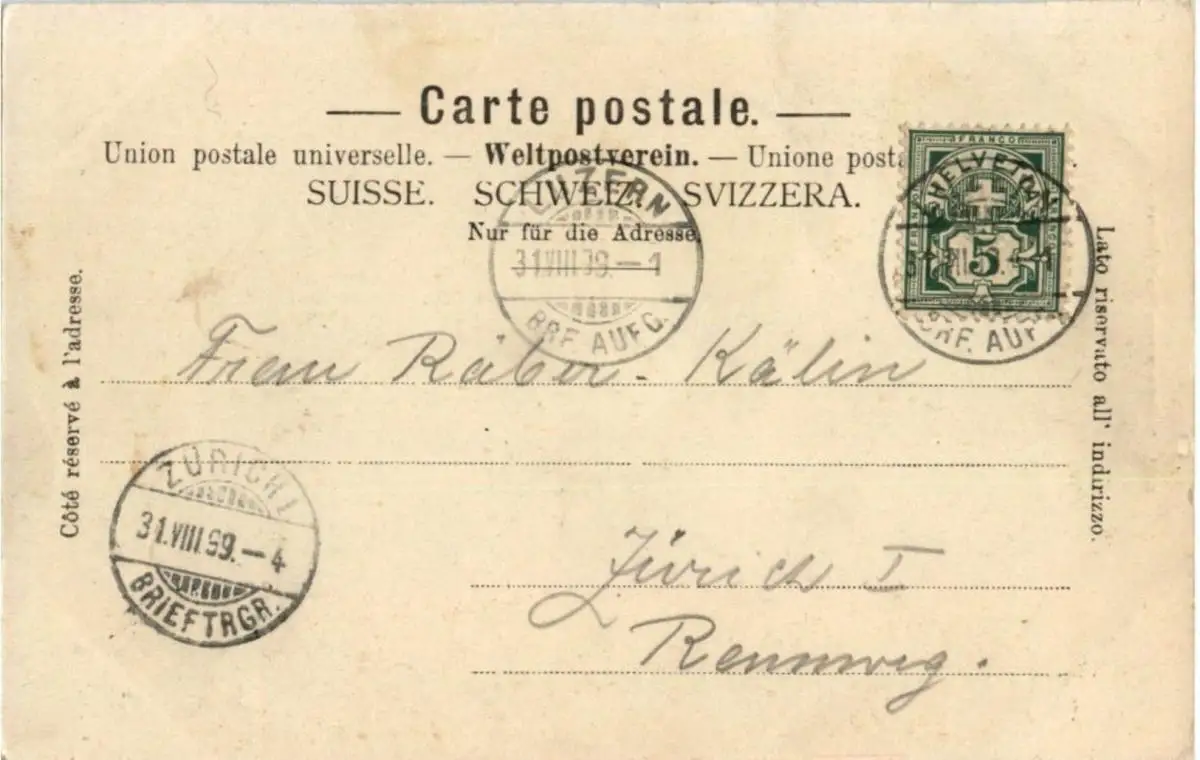 Carte postale.
Union postale universelle. — Weltpostverein. — Unione posta
SUISSE. SCHWEIZ. SVIZZERA.
Nur für die Adresse.
Côté réservé à l'adresse.
Lato riservato all' indirizzo.
FRANCO
HELVETIA
5
BRF. AUF
LUZERN
31.VIII.99.—1
BRF. AUFG.
Frau Räber-Kälin
ZÜRICH I
31.VIII.99.—4
BRIEFTRGR.
Zürich I
Rennweg.